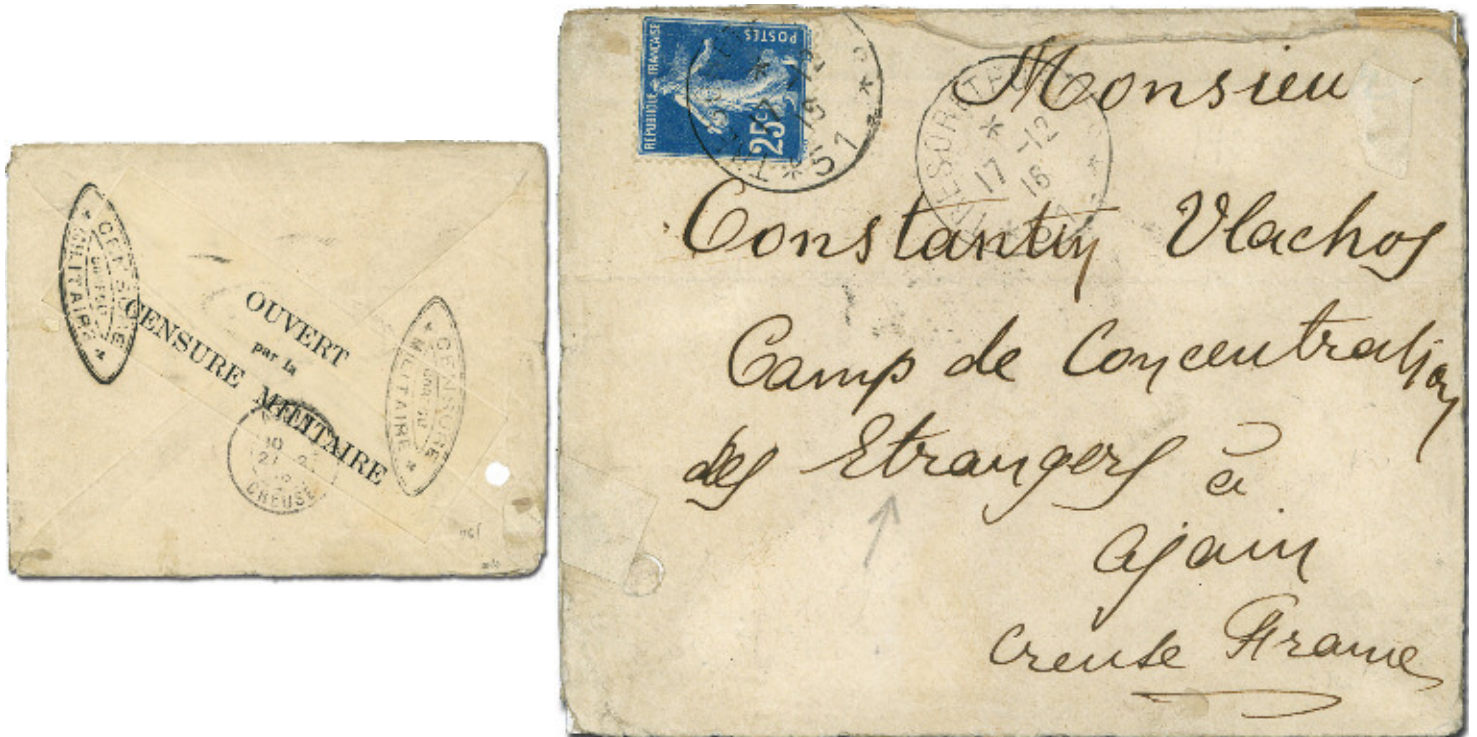 * CENSURE
MILITAIRE *
OUVERT
par la
CENSURE MILITAIRE
* CENSURE
MILITAIRE *
10
CREUSE
REPUBLIQUE FRANÇAISE
POSTES
25c
17 -12
16
* 51 *
TRESOR ET POSTES
*
17 -12
16
Monsieur
Constantin Vlachos
Camp de Concentration
des Etrangers à
Ajain
Creuse France